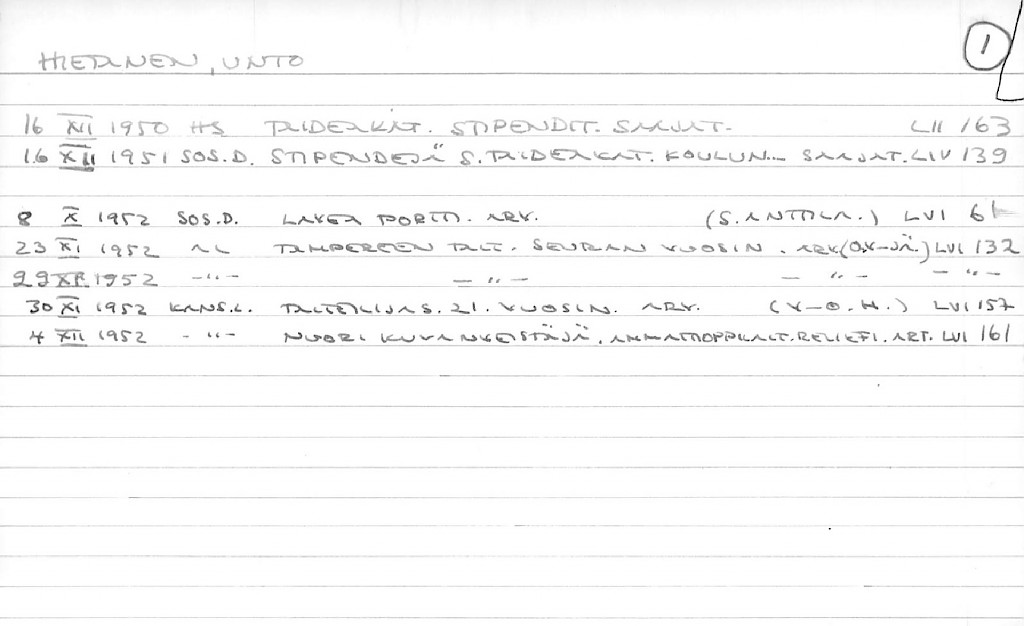 HIETANEN, UNTO
1
16 XII 1950 HS TAIDEAKAT. STIPENDIT. SAAJAT. LII 163
16 XII 1951 SOS.D. STIPENDEJÄ S. TAIDEAKAT. KOULUN... SAAJAT. LIV 139
8 X 1952 SOS.D. LAKEA PORTTI. ARV. (S. ANTTILA.) LVI 61
23 XI 1952 AL TAMPEREEN TAIT. SEURAN VUOSIN. ARV (O.V-JÄ.) LVI 132
29 XI 1952 -"- -"- -"- -"-
30 XI 1952 KANS.L. TAITEILIJAS. 21. VUOSIN. ARV. (V-O. H.) LVI 157
4 XII 1952 -"- NUORI KUVANVEISTÄJÄ. AMMATTIOPPILAIT. RELIEFI. ART. LVI 161